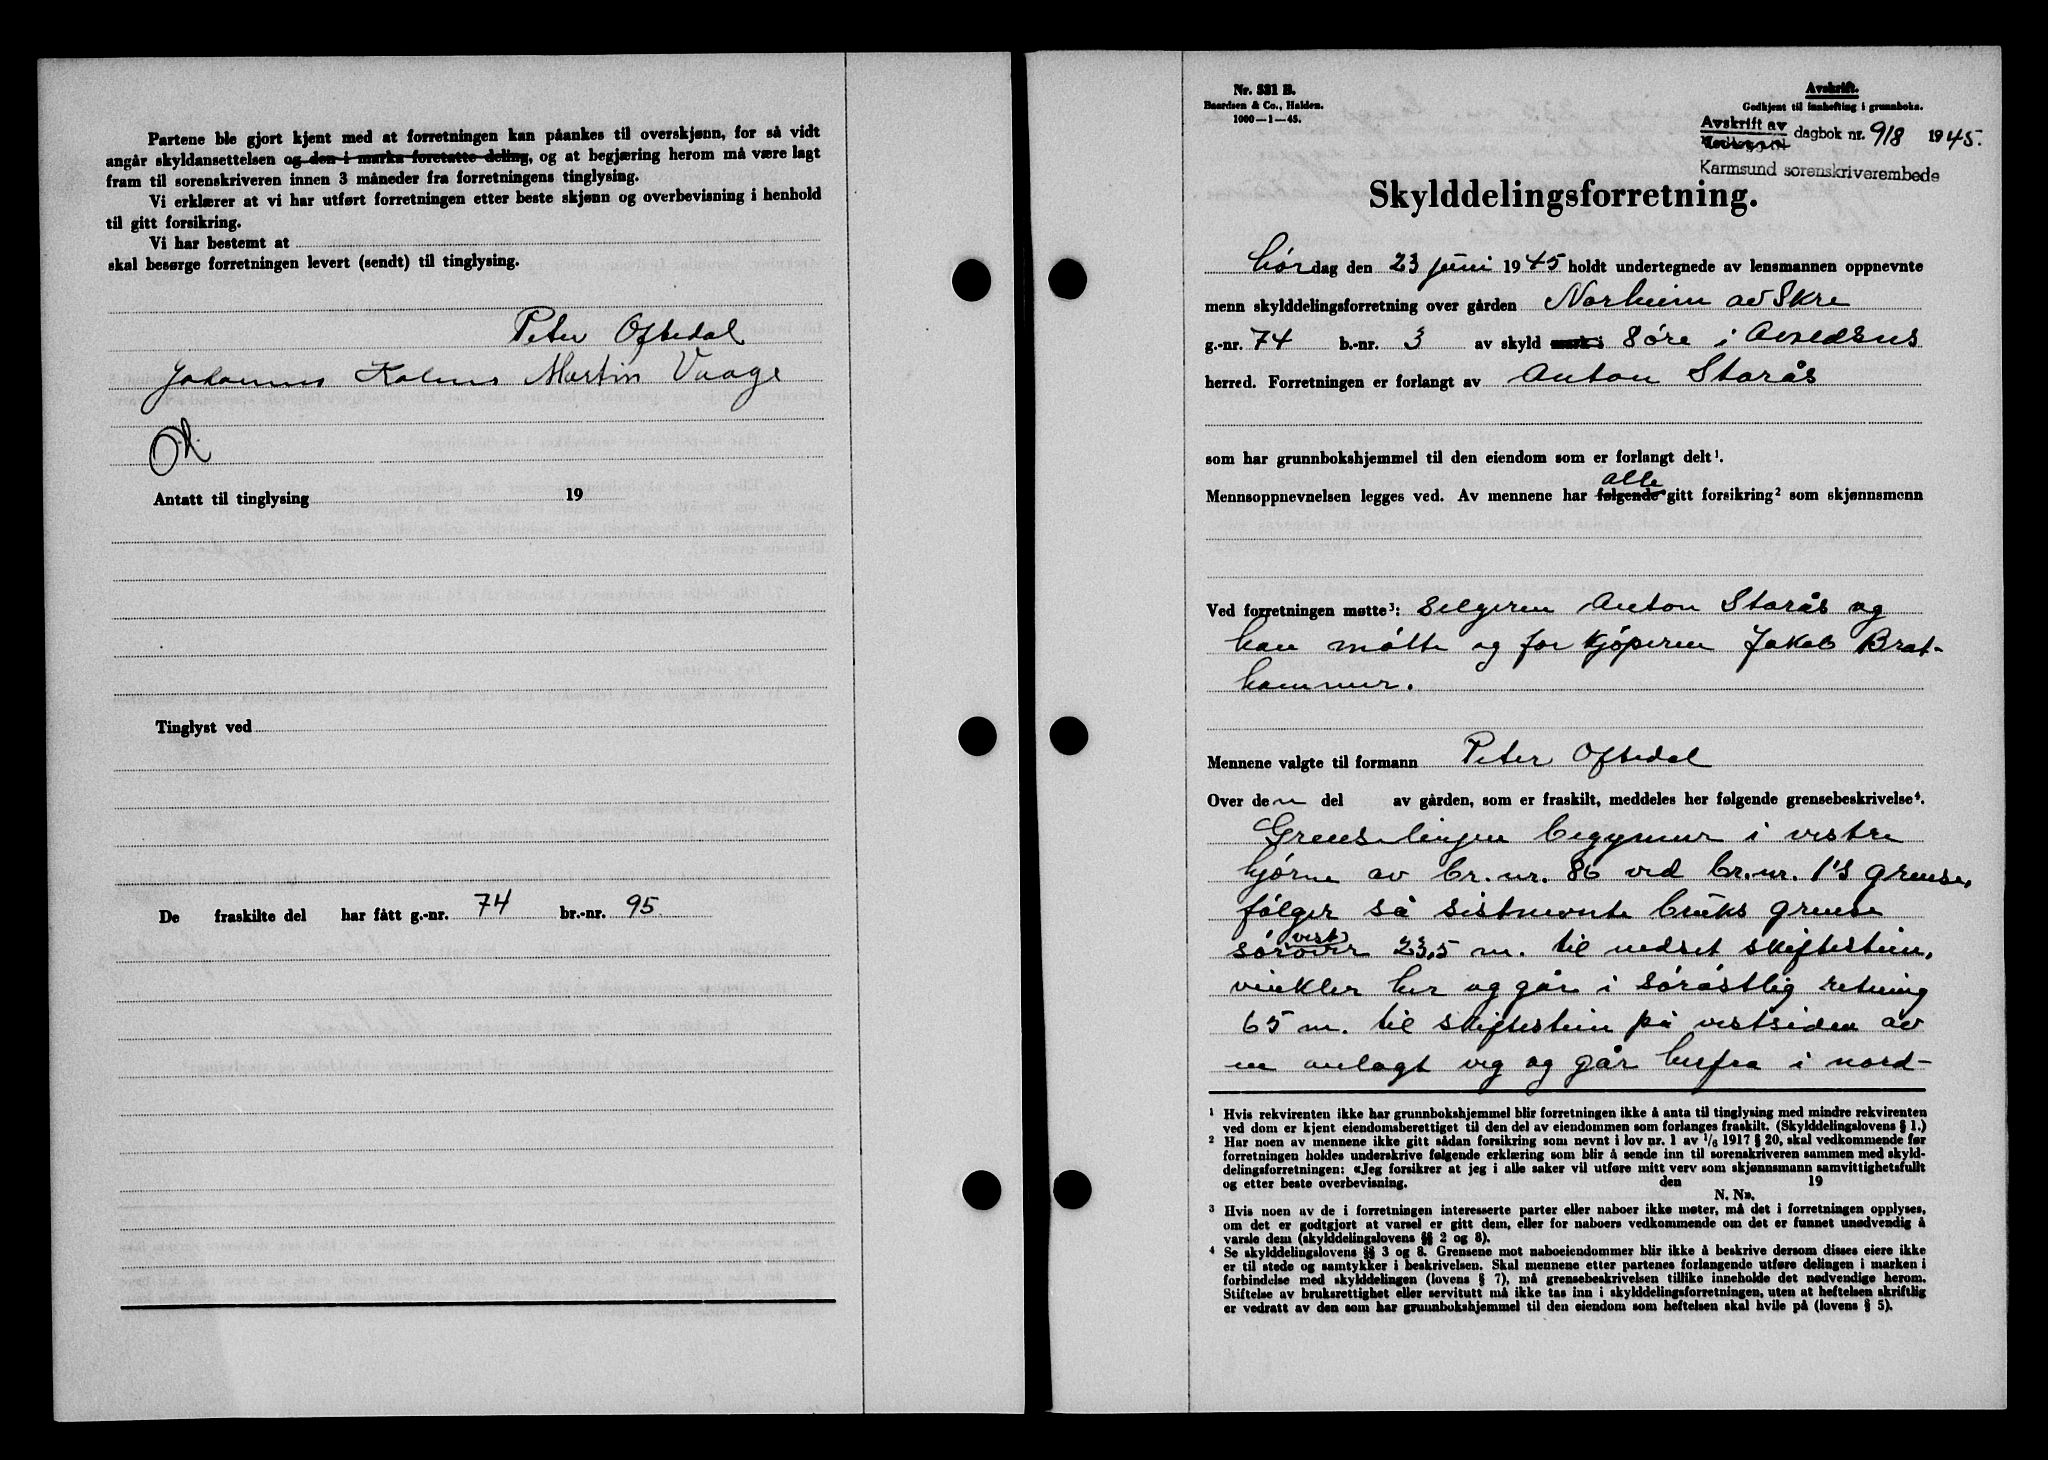 Partene ble gjort kjent med at forretningen kan påankes til overskjønn, for så vidt
angår skyldansettelsen og den i marka foretatte deling, og at begjæring herom må være lagt
fram til sorenskriveren innen 3 måneder fra forretningens tinglysing.
Vi erklærer at vi har utført forretningen etter beste skjønn og overbevisning i henhold
til gitt forsikring.
Vi har bestemt at
skal besørge forretningen levert (sendt) til tinglysing.
Peter Oftedal
Johannes Martin Vaage
Antatt til tinglysing 19
Tinglyst ved
De fraskilte del har fått g.-nr. 74 br.-nr. 95
Nr. 521 B.
Baardsen & Co., Halden.
1000—1—45.
Avskrift.
Godkjent til innhefting i grunnboka.
Avskrift av
dagbok nr. 918 1945.
Karmsund sorenskriverembede
Skylddelingsforretning.
Lördag den 23 juni 1945 holdt undertegnede av lensmannen oppnevnte
menn skylddelingsforretning over gården Norheim av Skre
g.-nr. 74 b.-nr. 3 av skyld mark i 8 öre i Avaldsnes
herred. Forretningen er forlangt av Anton Storås
som har grunnbokshjemmel til den eiendom som er forlangt delt¹.
alle
Mennsoppnevnelsen legges ved. Av mennene har følgende gitt forsikring² som skjønnsmenn
Ved forretningen møtte³: Selgeren Anton Storås og
han mötte og for kjöperen Jakob Brat-
hammer.
Mennene valgte til formann Peter Oftedal
Over den del av gården, som er fraskilt, meddeles her følgende grensebeskrivelse⁴.
Grenselinjen begynner i vestre
hjörne av br. nr. 86 ved br. nr. 1's grense,
fölger så sistnevnte bruks grense
vest
sörover 23,5 m. til nedset skiftestein,
vinkler her og går i söröstlig retning
65 m. til skiftestein på vestsiden av
en anlagt veg og går herfra i nord-
¹ Hvis rekvirenten ikke har grunnbokshjemmel blir forretningen ikke å anta til tinglysing med mindre rekvirenten
ved dom er kjent eiendomsberettiget til den del av eiendommen som forlanges fraskilt. (Skylddelingslovens § 1.)
² Har noen av mennene ikke gitt sådan forsikring som nevnt i lov nr. 1 av 1/6 1917 § 20, skal vedkommende før
forretningen holdes underskrive følgende erklæring som blir å sende inn til sorenskriveren sammen med skyld-
delingsforretningen: «Jeg forsikrer at jeg i alle saker vil utføre mitt verv som skjønnsmann samvittighetsfullt
og etter beste overbevisning. den 19
N. N».
³ Hvis noen av de i forretningen interesserte parter eller naboer ikke møter, må det i forretningen opplyses,
om det er godtgjort at varsel er gitt dem, eller for naboers vedkommende om det er funnet unødvendig å
varsle dem (skylddelingslovens §§ 2 og 8).
⁴ Se skylddelingslovens §§ 3 og 8. Grensene mot naboeiendommer blir ikke å beskrive dersom disses eiere ikke
er til stede og samtykker i beskrivelsen. Skal mennene etter partenes forlangende utføre delingen i marken i
forbindelse med skylddelingen (lovens § 7), må grensebeskrivelsen tillike inneholde det nødvendige herom.
Stiftelse av bruksrettighet eller servitutt må ikke tas inn i skylddelingsforretningen, uten at heftelsen skriftlig
er vedratt av den som har grunnbokshjemmel til den eiendom som heftelsen skal hvile på (lovens § 5).